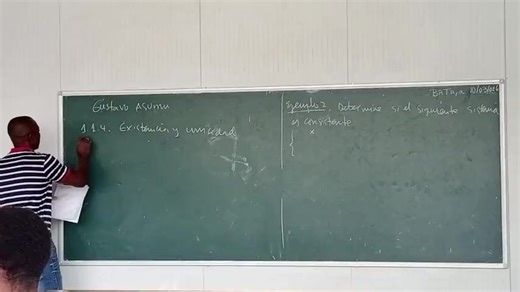 Gustavo Asumu
1.1.4. Existencia y unicidad
Ejemplo 2. Determine si el siguiente sistema
es consistente
x